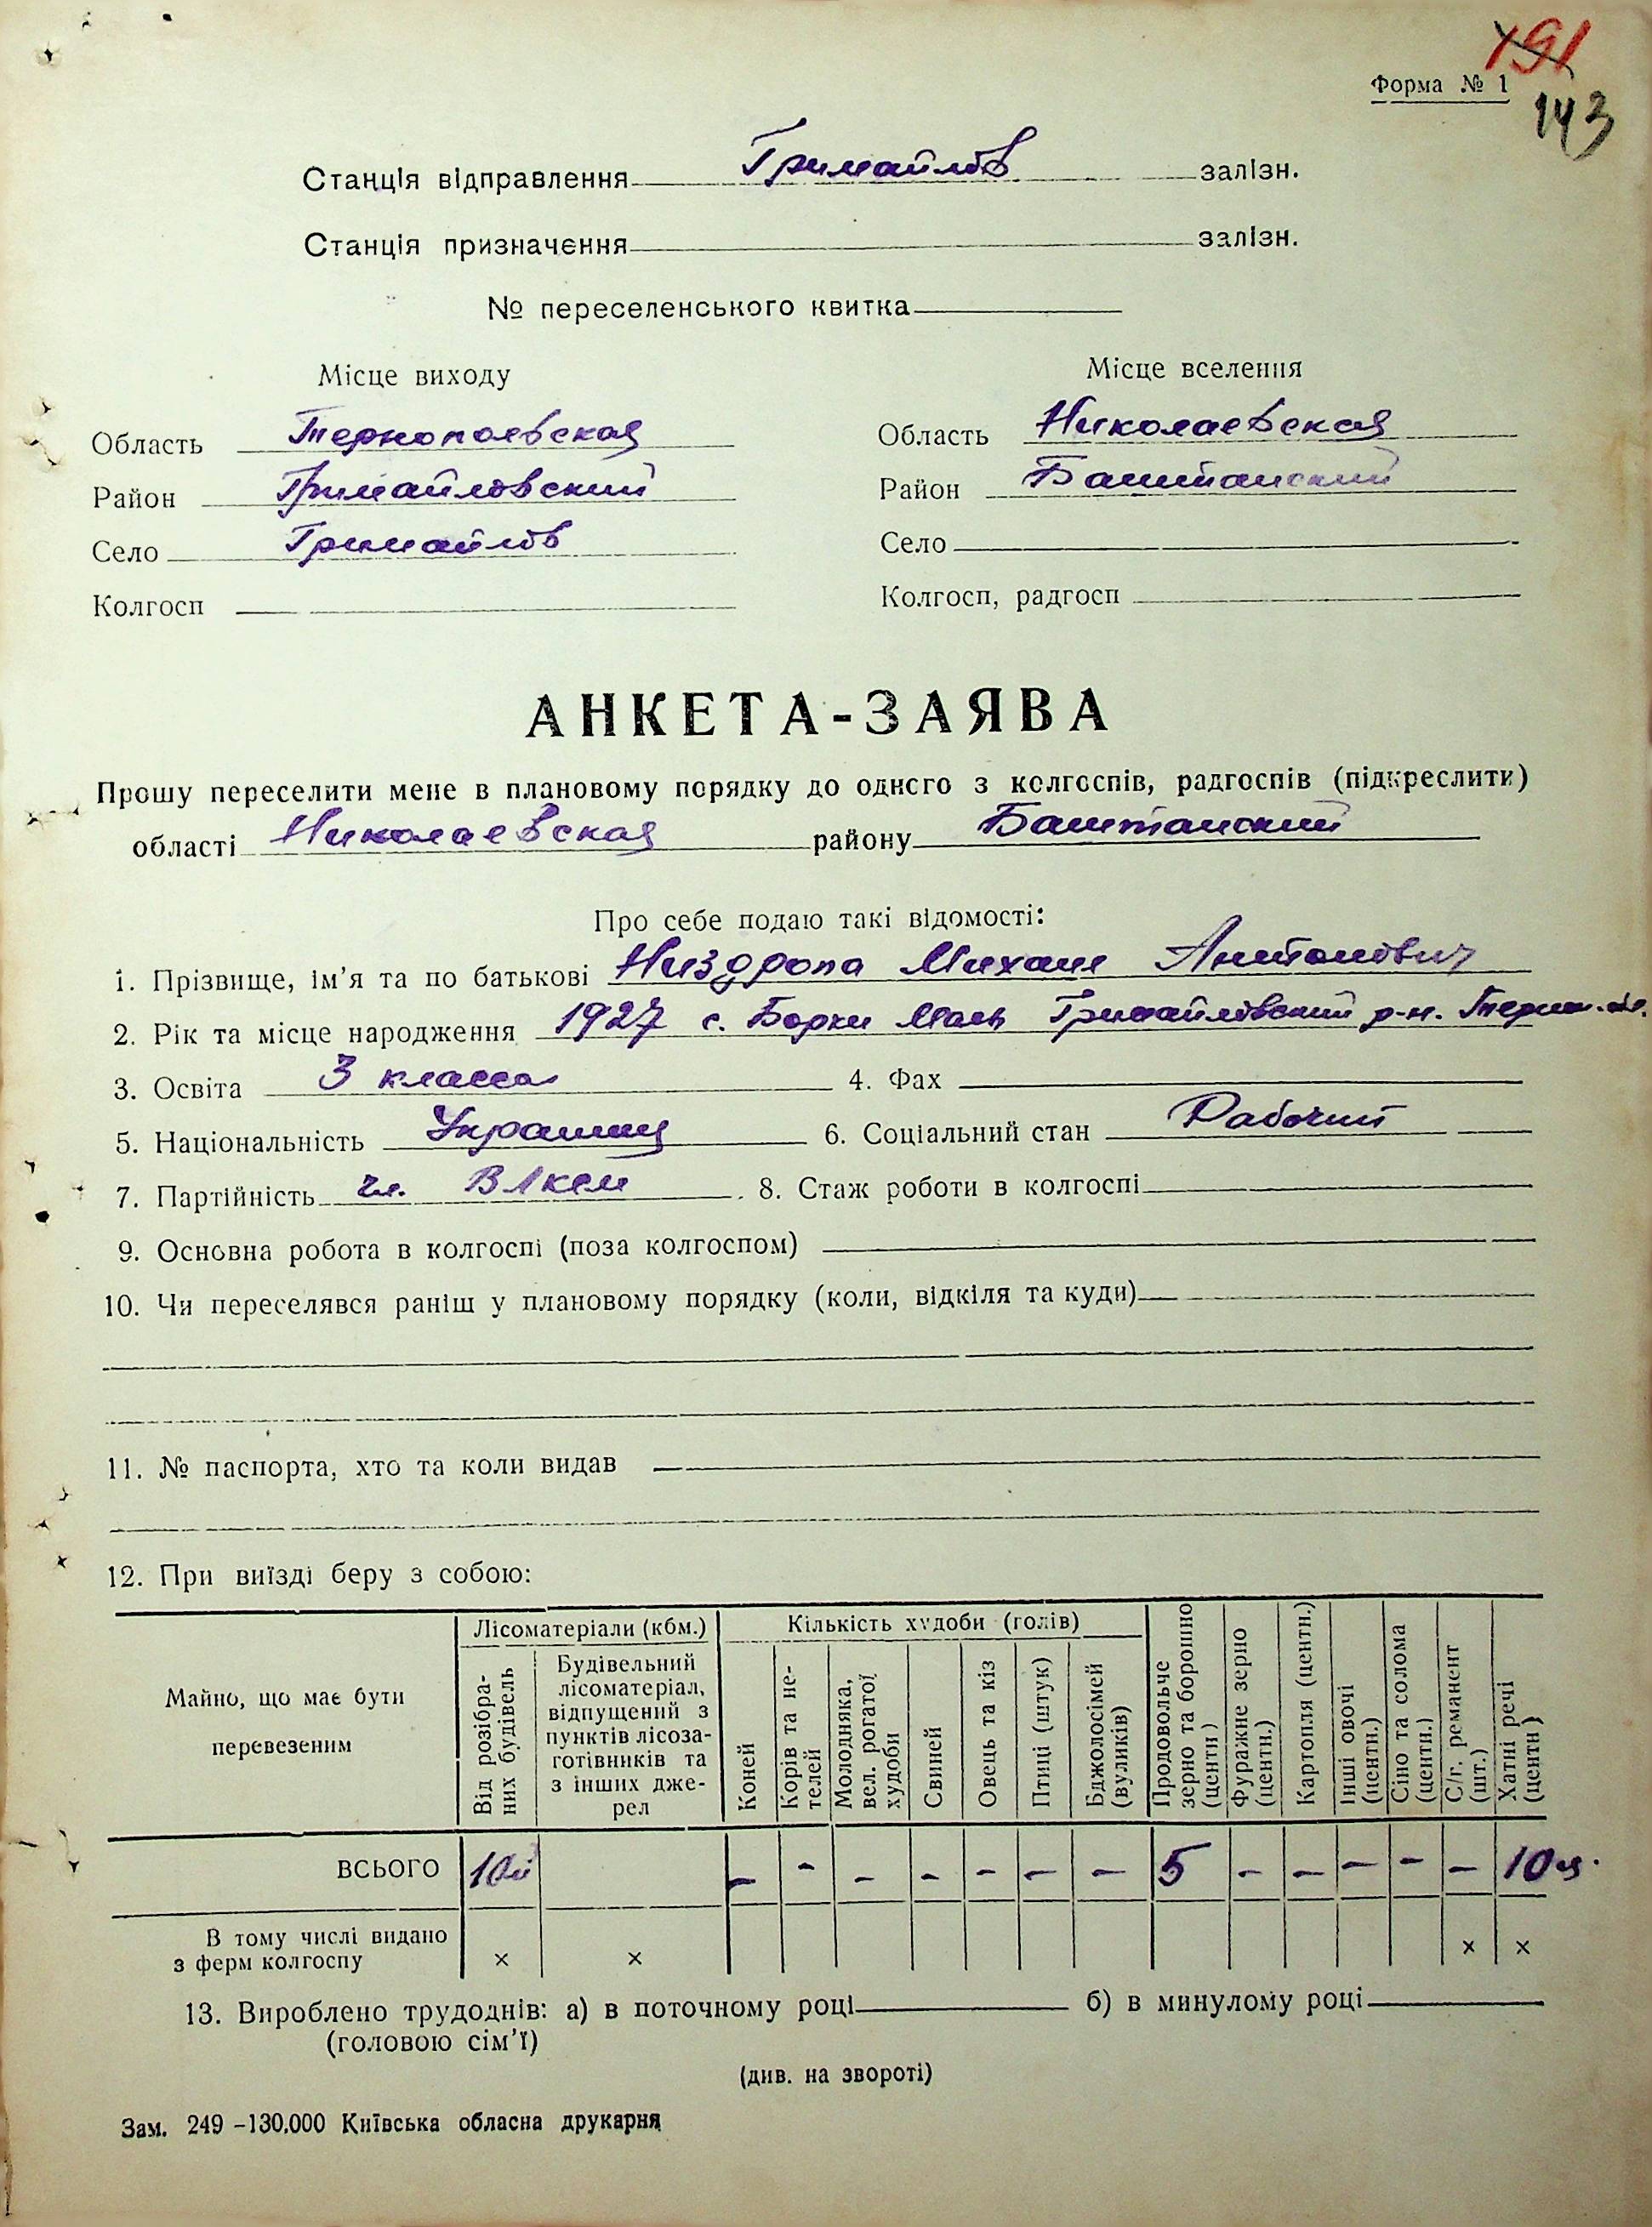 191
Форма № 1
143
Станція відправлення Гримайлов залізн.
Станція призначення залізн.
№ переселенського квитка
Місце виходу
Місце вселення
Область Тернопольская
Область Николаевская
Район Гримайловский
Район Баштанский
Село Гримайлов
Село
Колгосп
Колгосп, радгосп
АНКЕТА-ЗАЯВА
Прошу переселити мене в плановому порядку до одного з колгоспів, радгоспів (підкреслити)
області Николаевская району Баштанский
Про себе подаю такі відомості:
1. Прізвище, ім'я та по батькові Низдропа Михаил Антонович
2. Рік та місце народження 1927 с. Борки Мал Гримайловский р-н. Терноп. обл.
3. Освіта 3 класса 4. Фах
5. Національність Украинец 6. Соціальний стан Рабочий
7. Партійність чл. ВЛКСМ 8. Стаж роботи в колгоспі
9. Основна робота в колгоспі (поза колгоспом)
10. Чи переселявся раніш у плановому порядку (коли, відкіля та куди)
11. № паспорта, хто та коли видав
12. При виїзді беру з собою:
Майно, що має бути
перевезеним
Лісоматеріали (кбм.)
Від розібра-
них будівель
Будівельний
лісоматеріал,
відпущений з
пунктів лісоза-
готівників та
з інших дже-
рел
Кількість худоби (голів)
Коней
Корів та не-
телей
Молодняка,
вел. рогатої
худоби
Свиней
Овець та кіз
Птиці (штук)
Бджолосімей
(вуликів)
Продовольче
зерно та борошно
(центн)
Фуражне зерно
(центн.)
Картопля (центн.)
Інші овочі
(центн.)
Сіно та солома
(центн.)
С/г. реманент
(шт.)
Хатні речі
(центн)
ВСЬОГО 10 – – – – – – – 5 – – – – – 10 ц.
В тому числі видано
з ферм колгоспу × × × ×
13. Вироблено трудоднів: а) в поточному році б) в минулому році
(головою сім'ї)
(див. на звороті)
Зам. 249 –130.000 Київська обласна друкарня